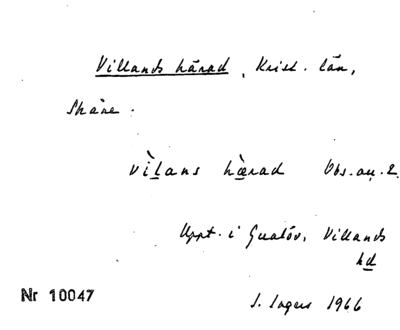 Villands härad, Krist. län,
Skåne.
vìlans hærad Obs. au. 2.
Uppt. i Gualöv, Villands
hd
Nr 10047
I. Ingers 1966